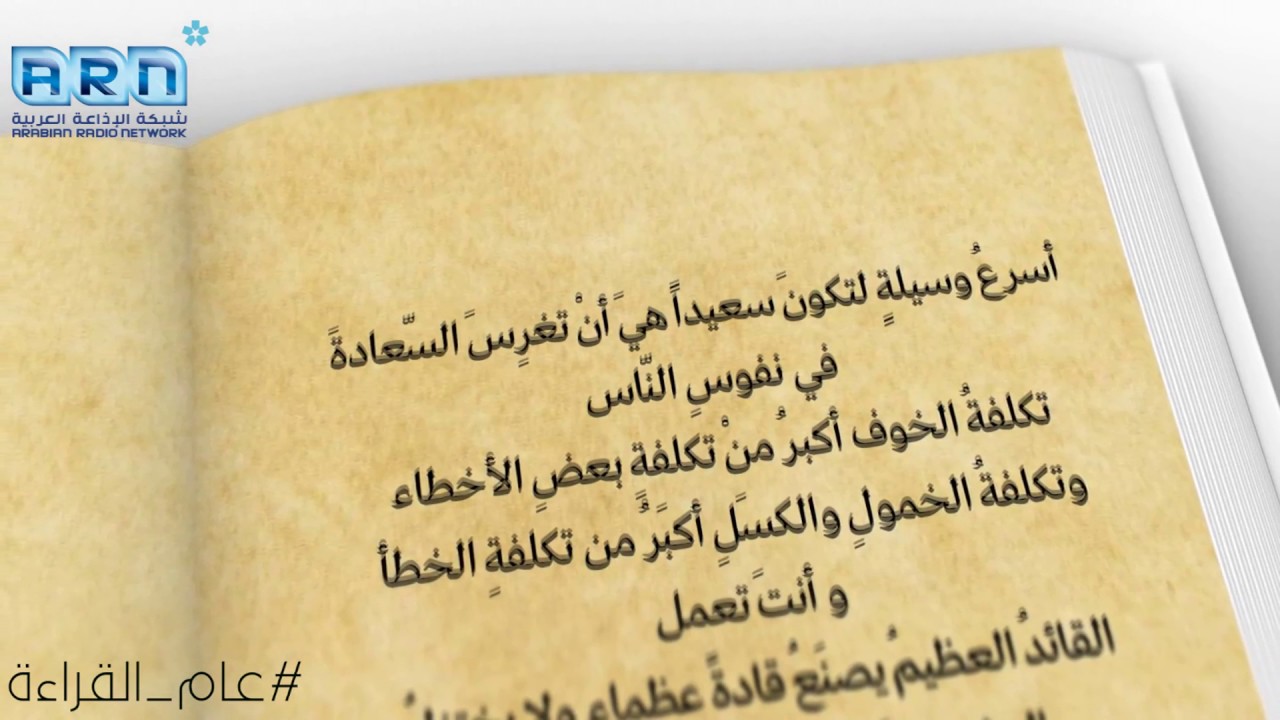 ARN
شبكة الإذاعة العربية
ARABIAN RADIO NETWORK
أسرعُ وسيلةٍ لتكونَ سعيداً هيَ أنْ تَغرِسَ السّعادةَ
في نفوسِ النّاس
تكلفةُ الخوف أكبرُ منْ تَكلفةِ بعضِ الأخطاء
وتكلفةُ الخمولِ والكسَلِ أكبَرُ من تَكلفةِ الخطأ
و أنتَ تَعمل
القائدُ العظيمُ يصنَعُ قادةً عظماء ولا
#عام_القراءة